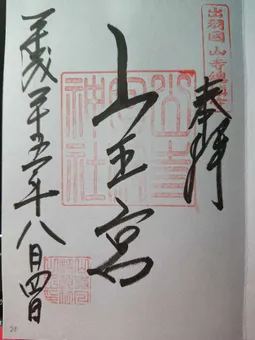 出羽國 山寺總鎮守
奉拝
山王宮
山寺
日枝
神社
平成二十五年八月四日